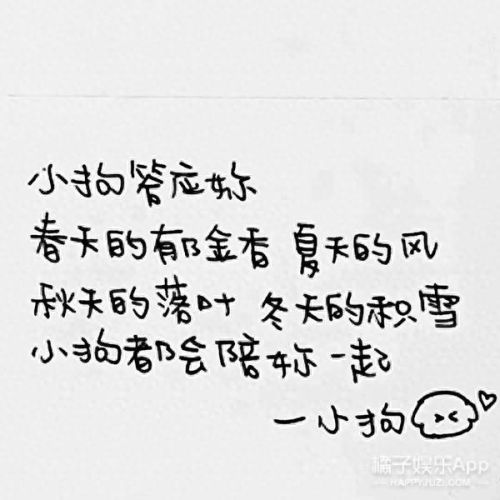 小狗答应妳
春天的郁金香 夏天的风
秋天的落叶 冬天的积雪
小狗都会陪妳一起
一小狗
橘子娱乐App
HAPPYJUZI.COM